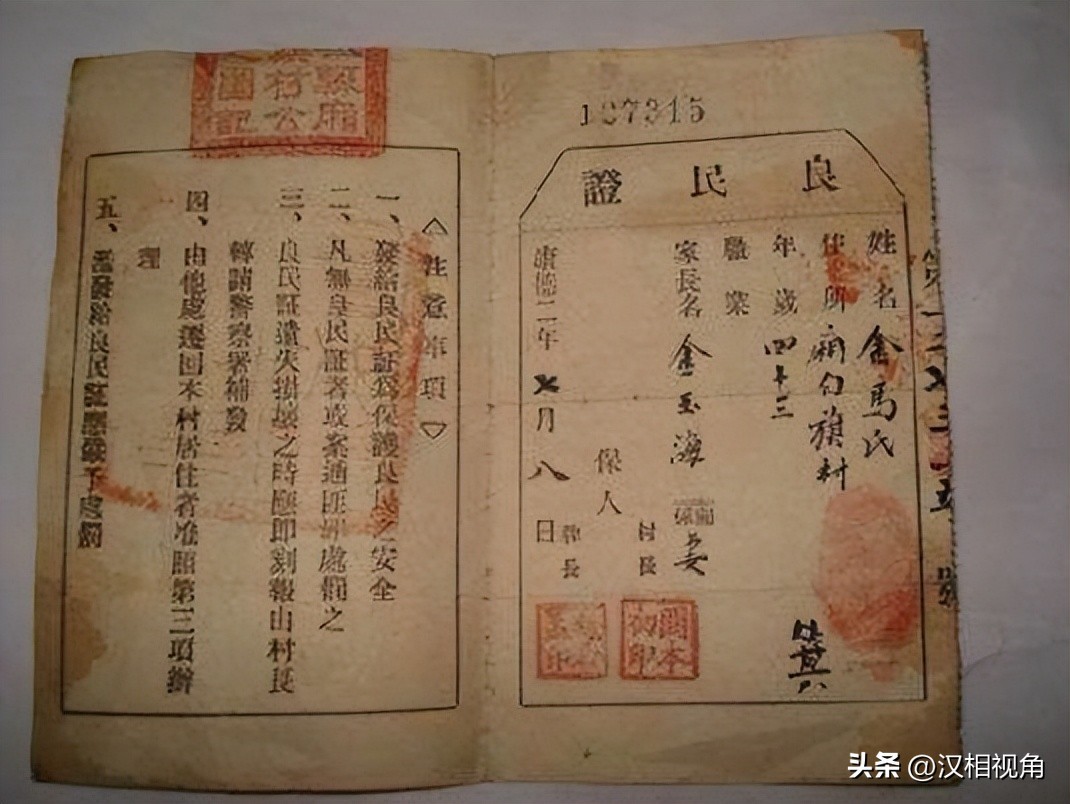 107315
良民證
姓名 金馬氏
住所 廂白旗村
年歲 四十三
職業
家長名 金玉海 關係 妻
保人
村長
牌長
康德二年七月八日
箕
注意事項
一、發給良民証爲保護良民之安全
二、凡無良民証者或案通匪罪處罰之
三、良民証遺失損壞之時應即刻報由村長
轉請警察署補發
四、由他處遷回本村居住者准照第三項辦
理
五、發給良民証應
頭条 @汉相视角